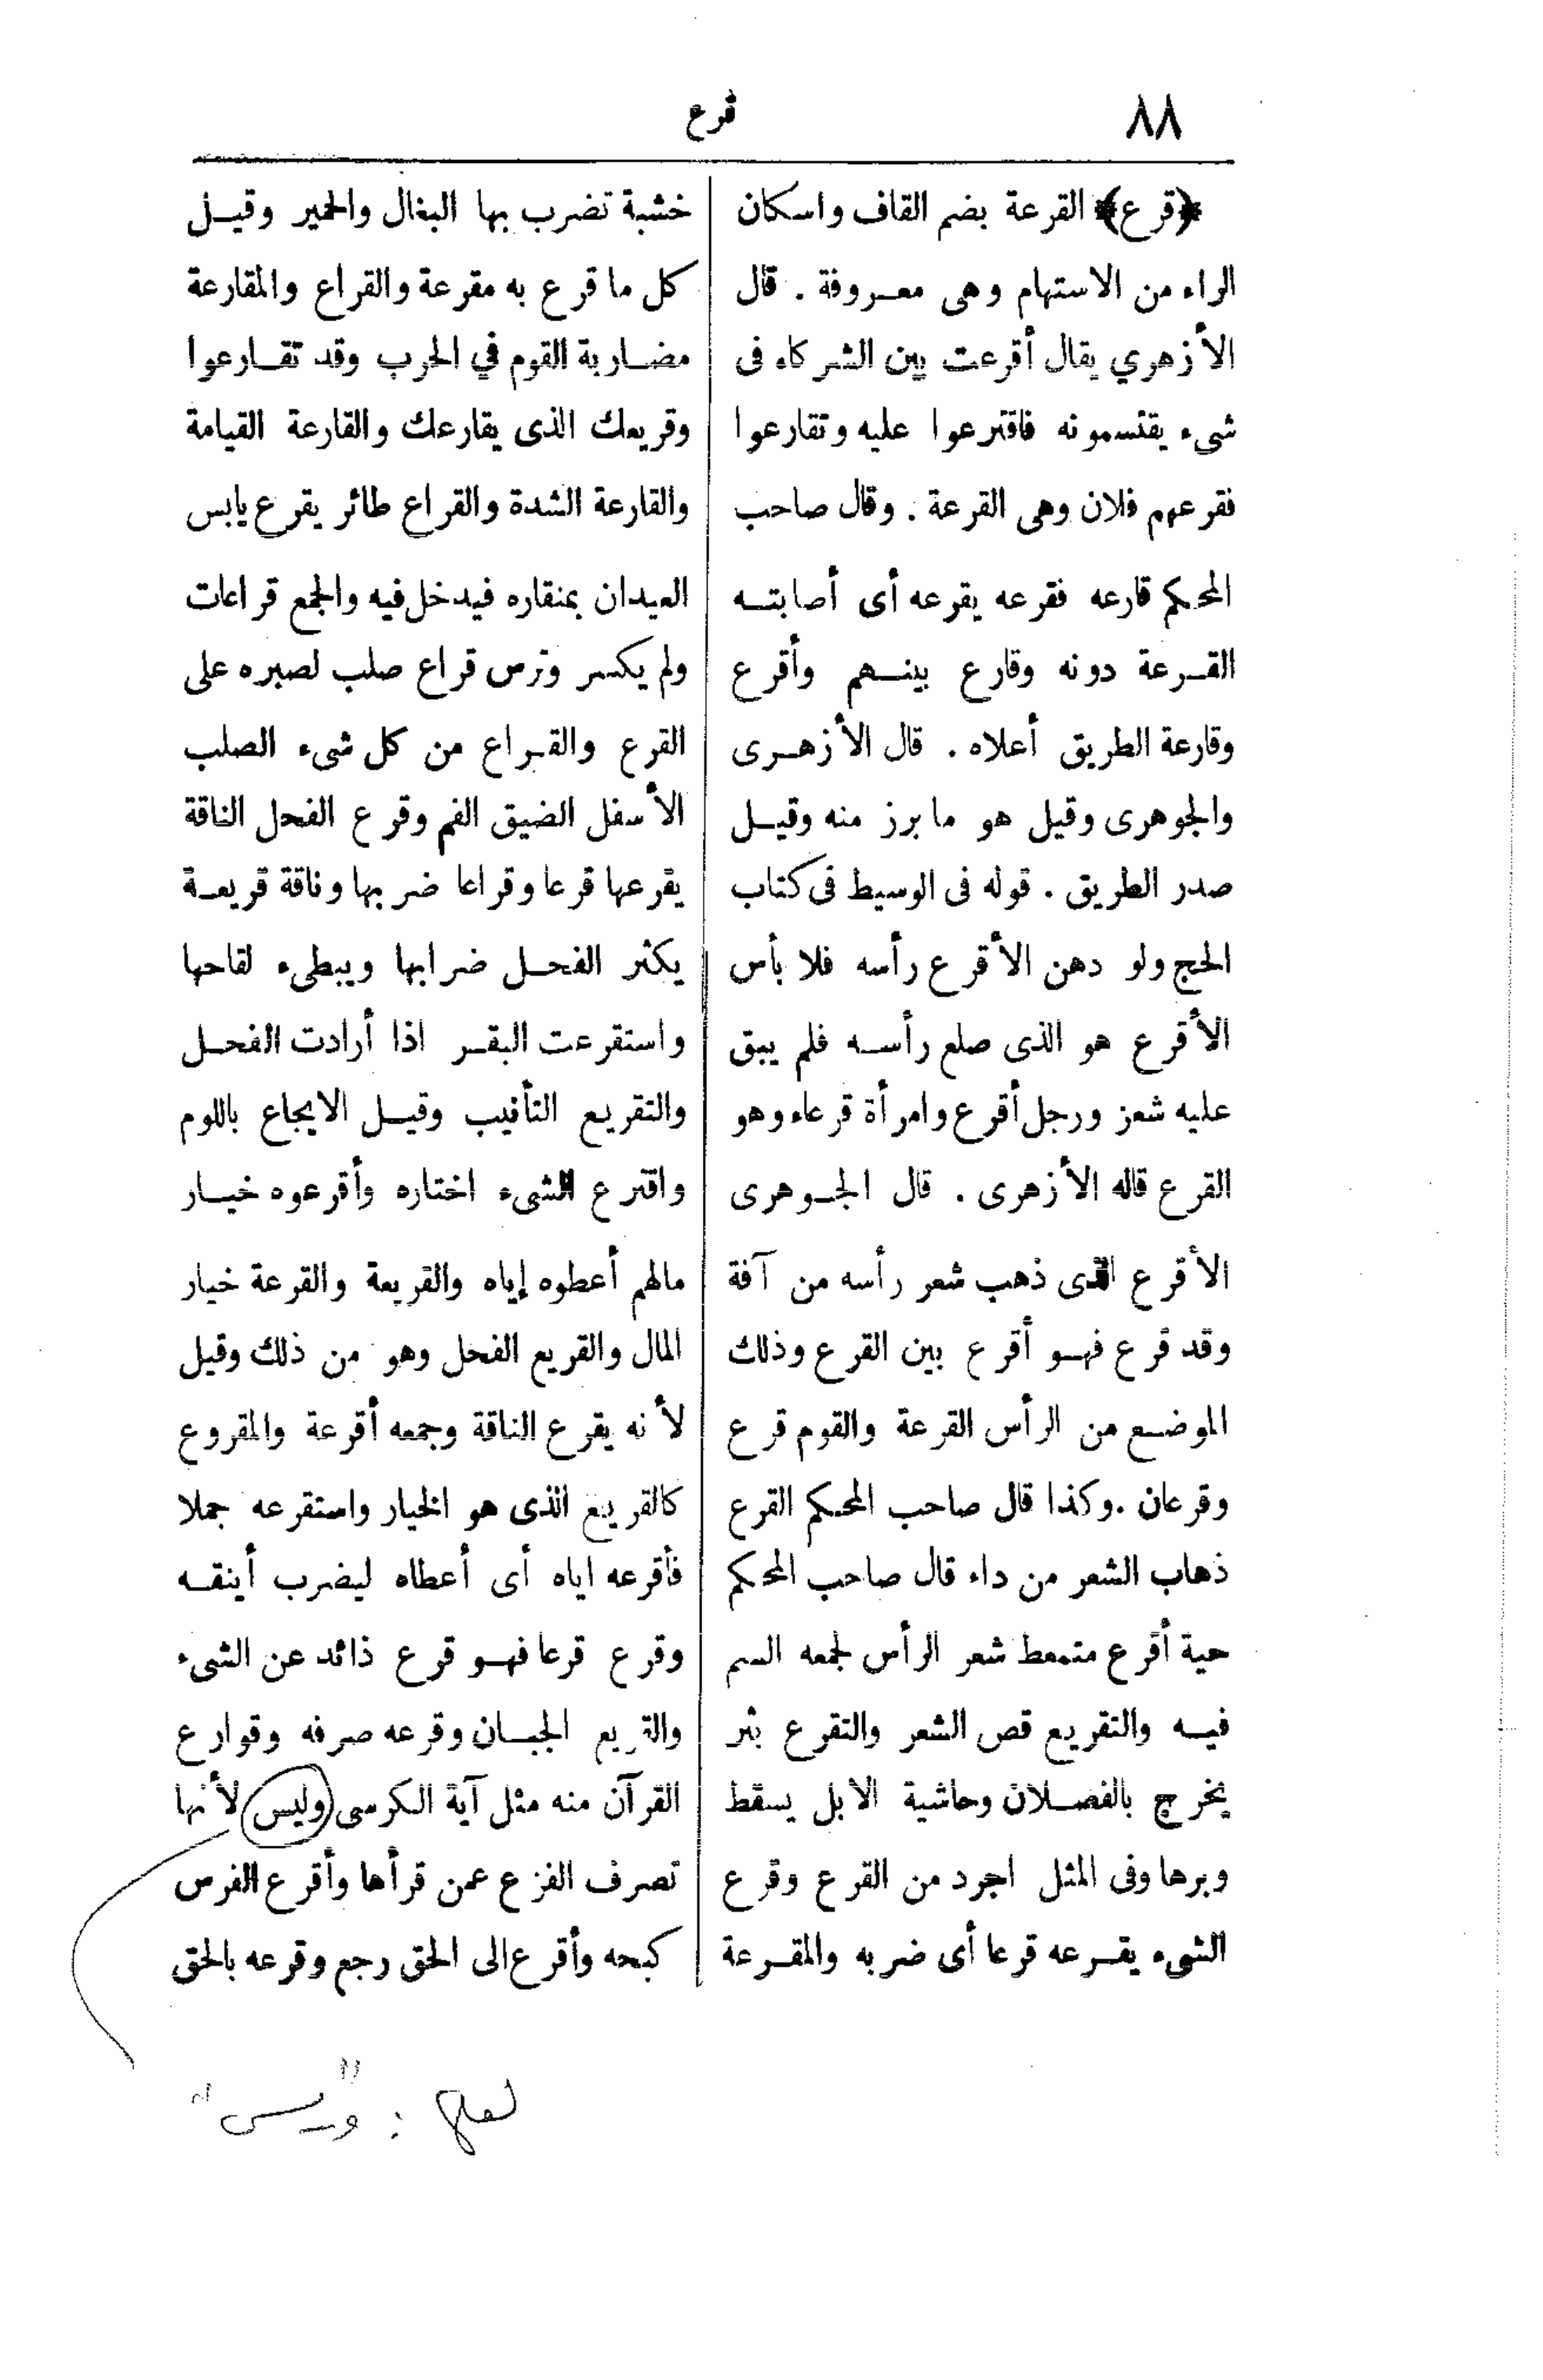 ٨٨
قرع
﴿قرع﴾ القرعة بضم القاف واسكان
الراء من الاستهام وهى معروفة . قال
الأزهري يقال أقرعت بين الشركاء فى
شىء يقتسمونه فاقترعوا عليه وتقارعوا
فقرعهم فلان وهى القرعة . وقال صاحب
المحكم قارعه فقرعه يقرعه أى أصابته
القرعة دونه وقارع بينهم وأقرع
وقارعة الطريق أعلاه . قال الأزهرى
والجوهرى وقيل هو ما برز منه وقيل
صدر الطريق . قوله فى الوسيط فى كتاب
الحج ولو دهن الأقرع رأسه فلا بأس
الأقرع هو الذى صلع رأسه فلم يبق
عليه شعر ورجل أقرع وامرأة قرعاء وهو
القرع قاله الأزهرى . قال الجوهرى
الأقرع الذى ذهب شعر رأسه من آفة
وقد قرع فهو أقرع بين القرع وذلك
الموضع من الرأس القرعة والقوم قرع
وقرعان . وكذا قال صاحب المحكم القرع
ذهاب الشعر من داء قال صاحب المحكم
حية أقرع متمعط شعر الرأس لجمعه السم
فيه والتقريع قص الشعر والتقرع بثر
يخرج بالفصلان وحاشية الابل يسقط
وبرها وفى المثل اجرد من القرع وقرع
الشىء يقرعه قرعا أى ضربه والمقرعة
خشبة تضرب بها البغال والحمير وقيل
كل ما قرع به مقرعة والقراع والمقارعة
مضاربة القوم في الحرب وقد تقارعوا
وقريعك الذى يقارعك والقارعة القيامة
والقارعة الشدة والقراع طائر يقرع يابس
العيدان بمنقاره فيدخل فيه والجمع قراعات
ولم يكسر وترس قراع صلب لصبره على
القرع والقراع من كل شىء الصلب
الأسفل الضيق الفم وقرع الفحل الناقة
يقرعها قرعا وقراعا ضربها وناقة قريعة
يكثر الفحل ضرابها ويبطىء لقاحها
واستقرعت البقر اذا أرادت الفحل
والتقريع التأنيب وقيل الايجاع باللوم
واقترع الشىء اختاره وأقرعوه خيار
مالهم أعطوه إياه والقريعة والقرعة خيار
المال والقريع الفحل وهو من ذلك وقيل
لأنه يقرع الناقة وجمعه أقرعة والمقروع
كالقريع الذى هو الخيار واستقرعه جملا
فأقرعه اياه أى أعطاه ليضرب أينقه
وقرع قرعا فهو قرع ذائد عن الشىء
والقريع الجبان وقرعه صرفه وقوارع
القرآن منه مثل آية الكرسى وليس لأنها
تصرف الفزع عمن قرأها وأقرع الفرس
كبحه وأقرع الى الحق رجع وقرعه بالحق
لعلها : "و يس"